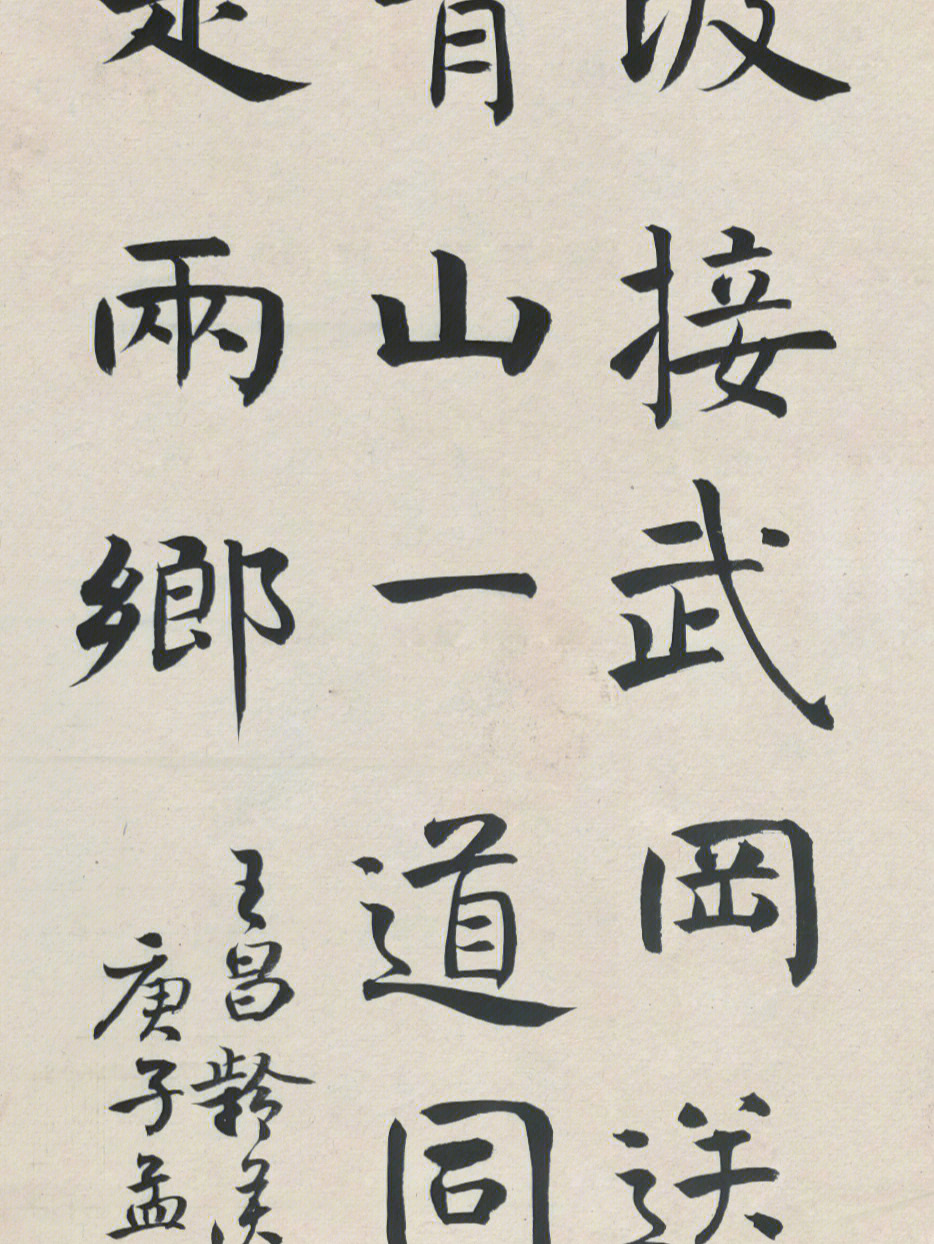 波接武岡送
青山一道同
是兩鄉
王昌齡
庚子孟